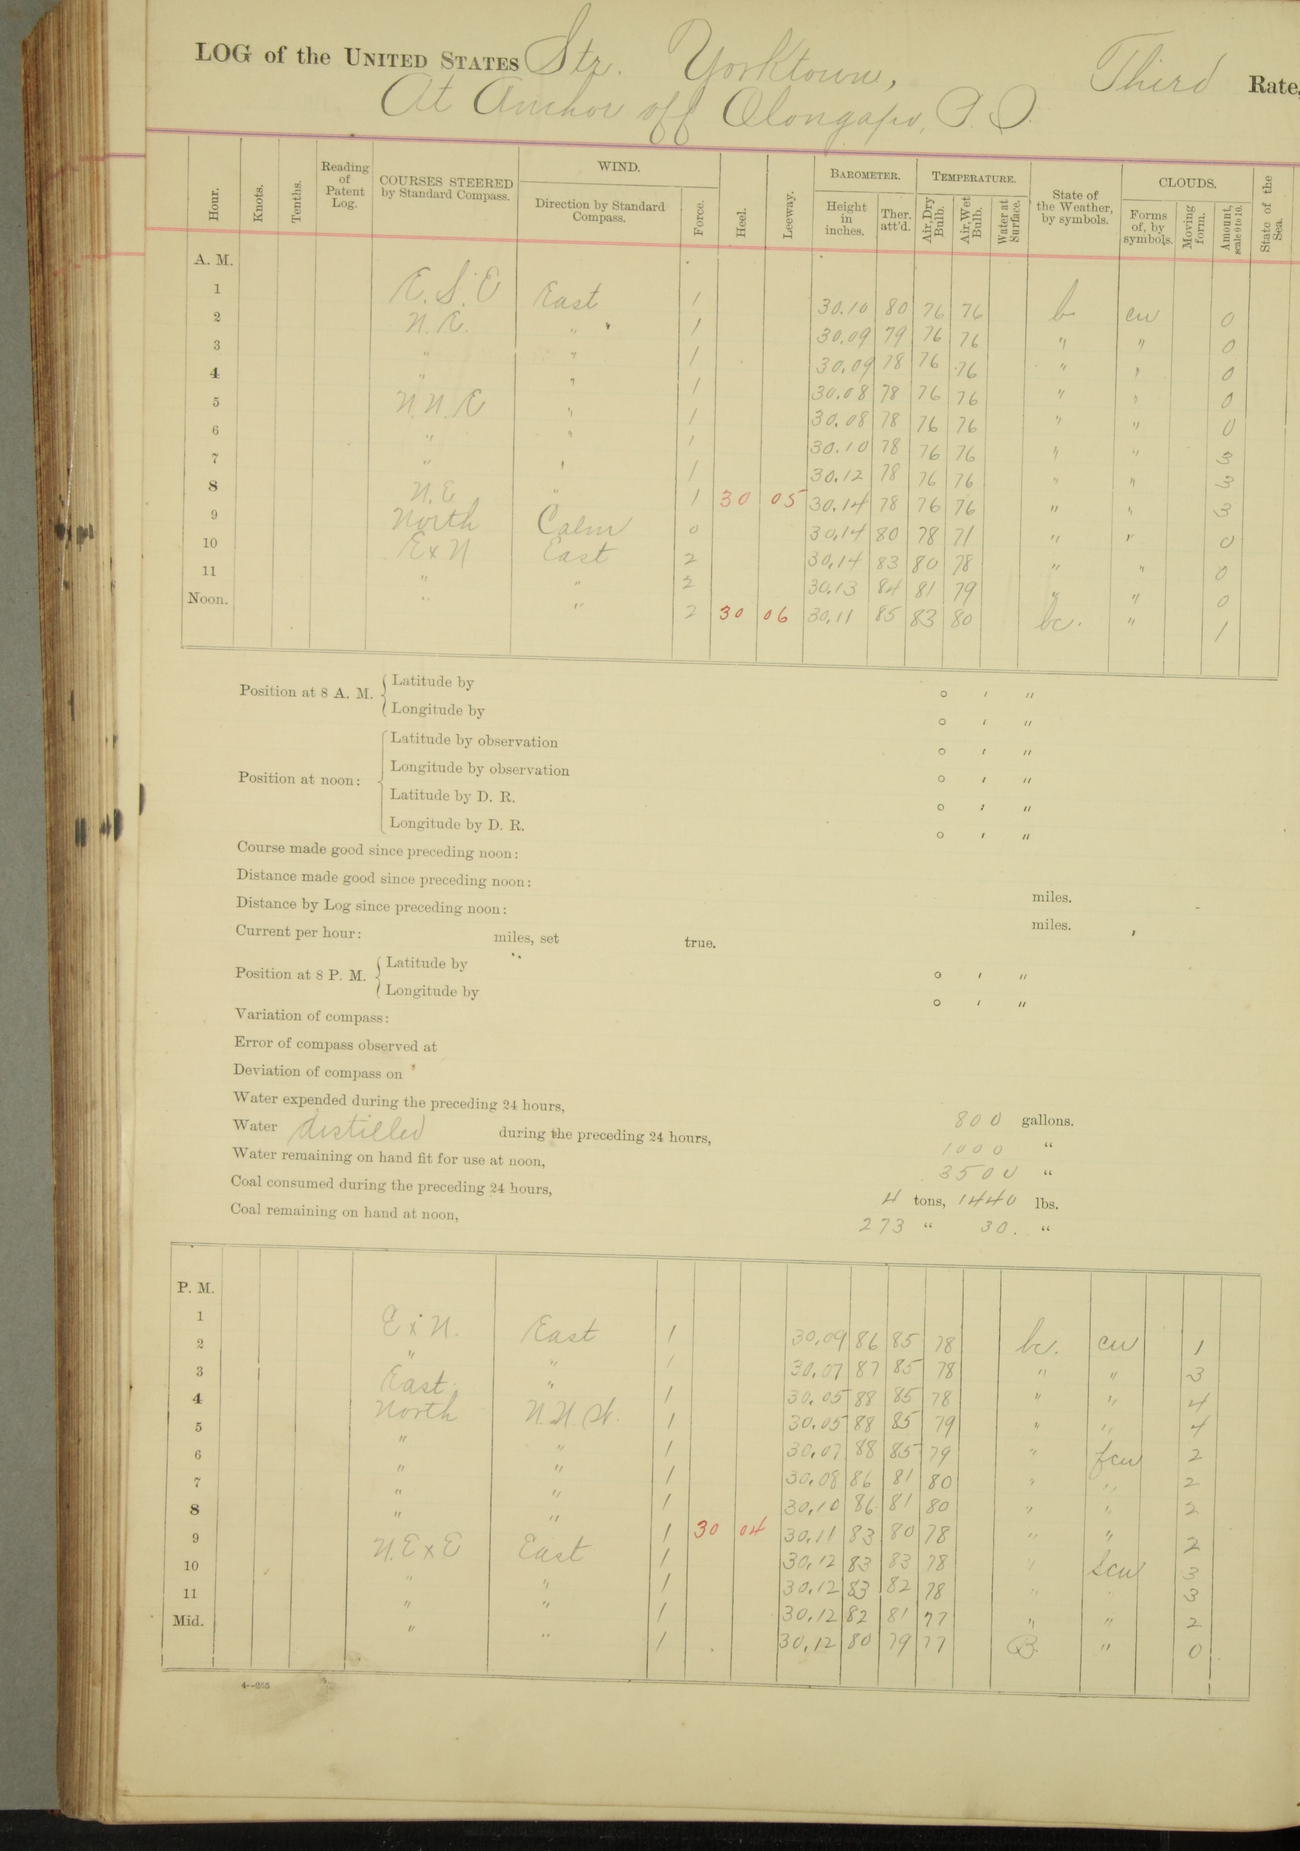 LOG of the UNITED STATES Str. Yorktown, Third Rate,
At Anchor off Olongapo, P. I.
Hour. Knots. Tenths. Reading of Patent Log. COURSES STEERED by Standard Compass. WIND. Direction by Standard Compass. Force. Heel. Leeway. BAROMETER. Height in inches. Ther. att'd. TEMPERATURE. Air, Dry Bulb. Air, Wet Bulb. Water at Surface. State of the Weather, by symbols. CLOUDS. Forms of, by symbols. Moving form. Amount, scale 0 to 10. State of the Sea.
A. M.
1 E. S. E East 1 30.10 80 76 76 b cu 0
2 N. E. " 1 30.09 79 76 76 " " 0
3 " " 1 30.09 78 76 76 " " 0
4 " " 1 30.08 78 76 76 " " 0
5 N. N. E " 1 30.08 78 76 76 " " 0
6 " " 1 30.10 78 76 76 " " 3
7 " " 1 30.12 78 76 76 " " 3
8 N. E " 1 30 05 30.14 78 76 76 " " 3
9 North Calm 0 30.14 80 78 71 " " 0
10 ExN East 2 30.14 83 80 78 " " 0
11 " " 2 30.13 84 81 79 " " 0
Noon. " " 2 30 06 30.11 85 83 80 bc. " 1
Position at 8 A. M. Latitude by ° ′ ″
Longitude by ° ′ ″
Position at noon: Latitude by observation ° ′ ″
Longitude by observation ° ′ ″
Latitude by D. R. ° ′ ″
Longitude by D. R. ° ′ ″
Course made good since preceding noon:
Distance made good since preceding noon: miles.
Distance by Log since preceding noon: miles.
Current per hour: miles, set true.
Position at 8 P. M. Latitude by ° ′ ″
Longitude by ° ′ ″
Variation of compass:
Error of compass observed at
Deviation of compass on
Water expended during the preceding 24 hours, 800 gallons.
Water distilled during the preceding 24 hours, 1000 "
Water remaining on hand fit for use at noon, 3500 "
Coal consumed during the preceding 24 hours, 4 tons, 1440 lbs.
Coal remaining on hand at noon, 273 " 30. "
P. M.
1 ExN. East 1 30.09 86 85 78 bc. cu 1
2 " " 1 30.07 87 85 78 " " 3
3 East " 1 30.05 88 85 78 " " 4
4 North N. N. W. 1 30.05 88 85 79 " " 4
5 " " 1 30.07 88 85 79 " fcu 2
6 " " 1 30.08 86 81 80 " " 2
7 " " 1 30.10 86 81 80 " " 2
8 " " 1 30 04 30.11 83 80 78 " " 2
9 N. E x E East 1 30.12 83 83 78 " Scu 3
10 " " 1 30.12 83 82 78 " " 3
11 " " 1 30.12 82 81 77 " " 2
Mid. " " 1 30.12 80 79 77 B. " 0
4--255